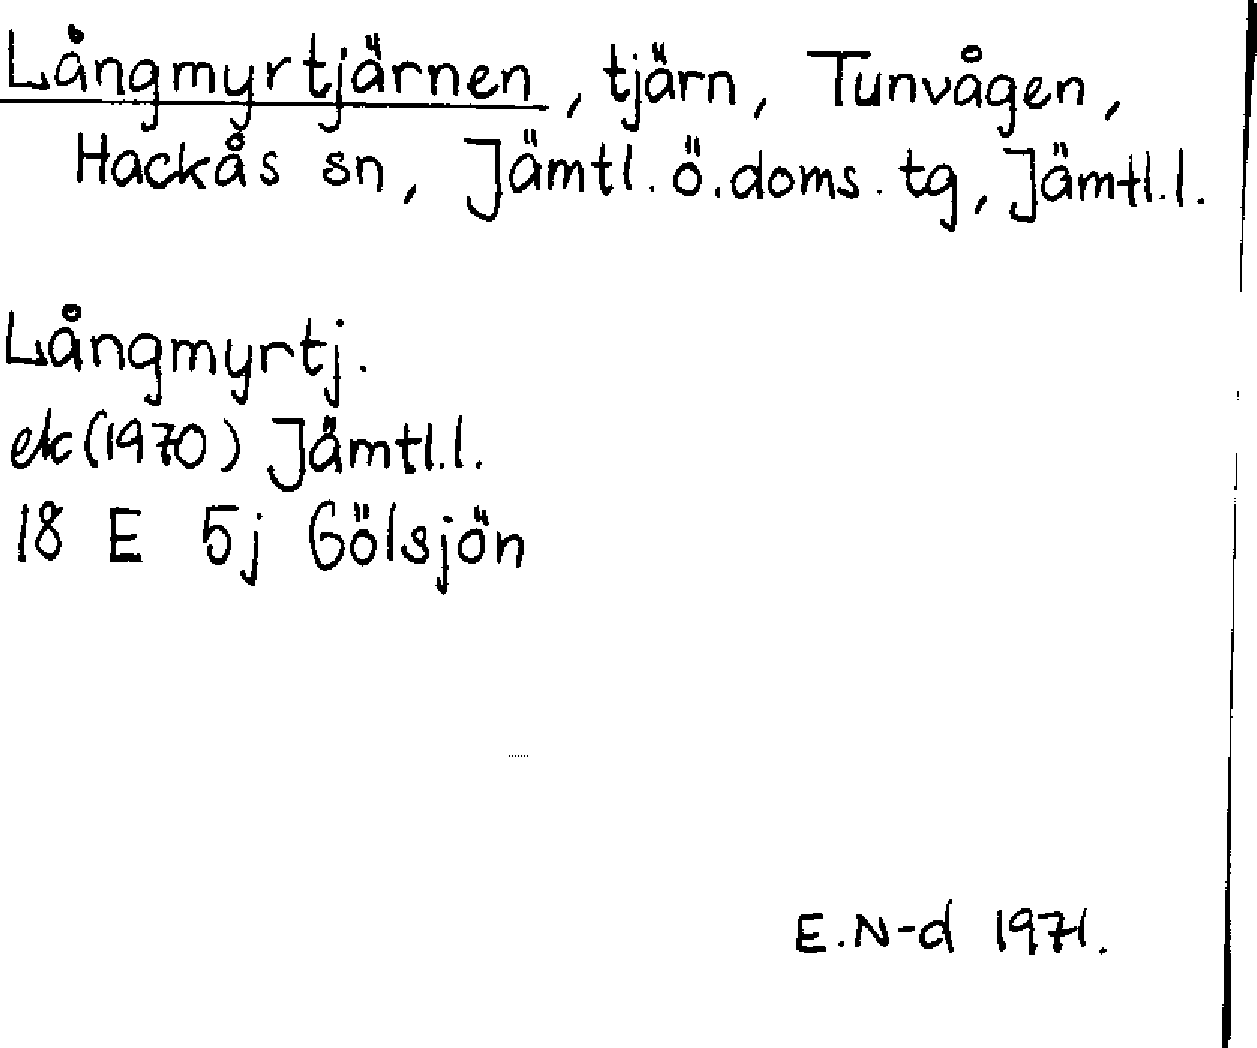 Långmyrtjärnen, tjärn, Tunvågen,
Hackås sn, Jämtl. ö. doms. tg, Jämtl.l.
Långmyrtj.
ek (1970) Jämtl.l.
18 E 5j Gölsjön
E.N-d 1971.